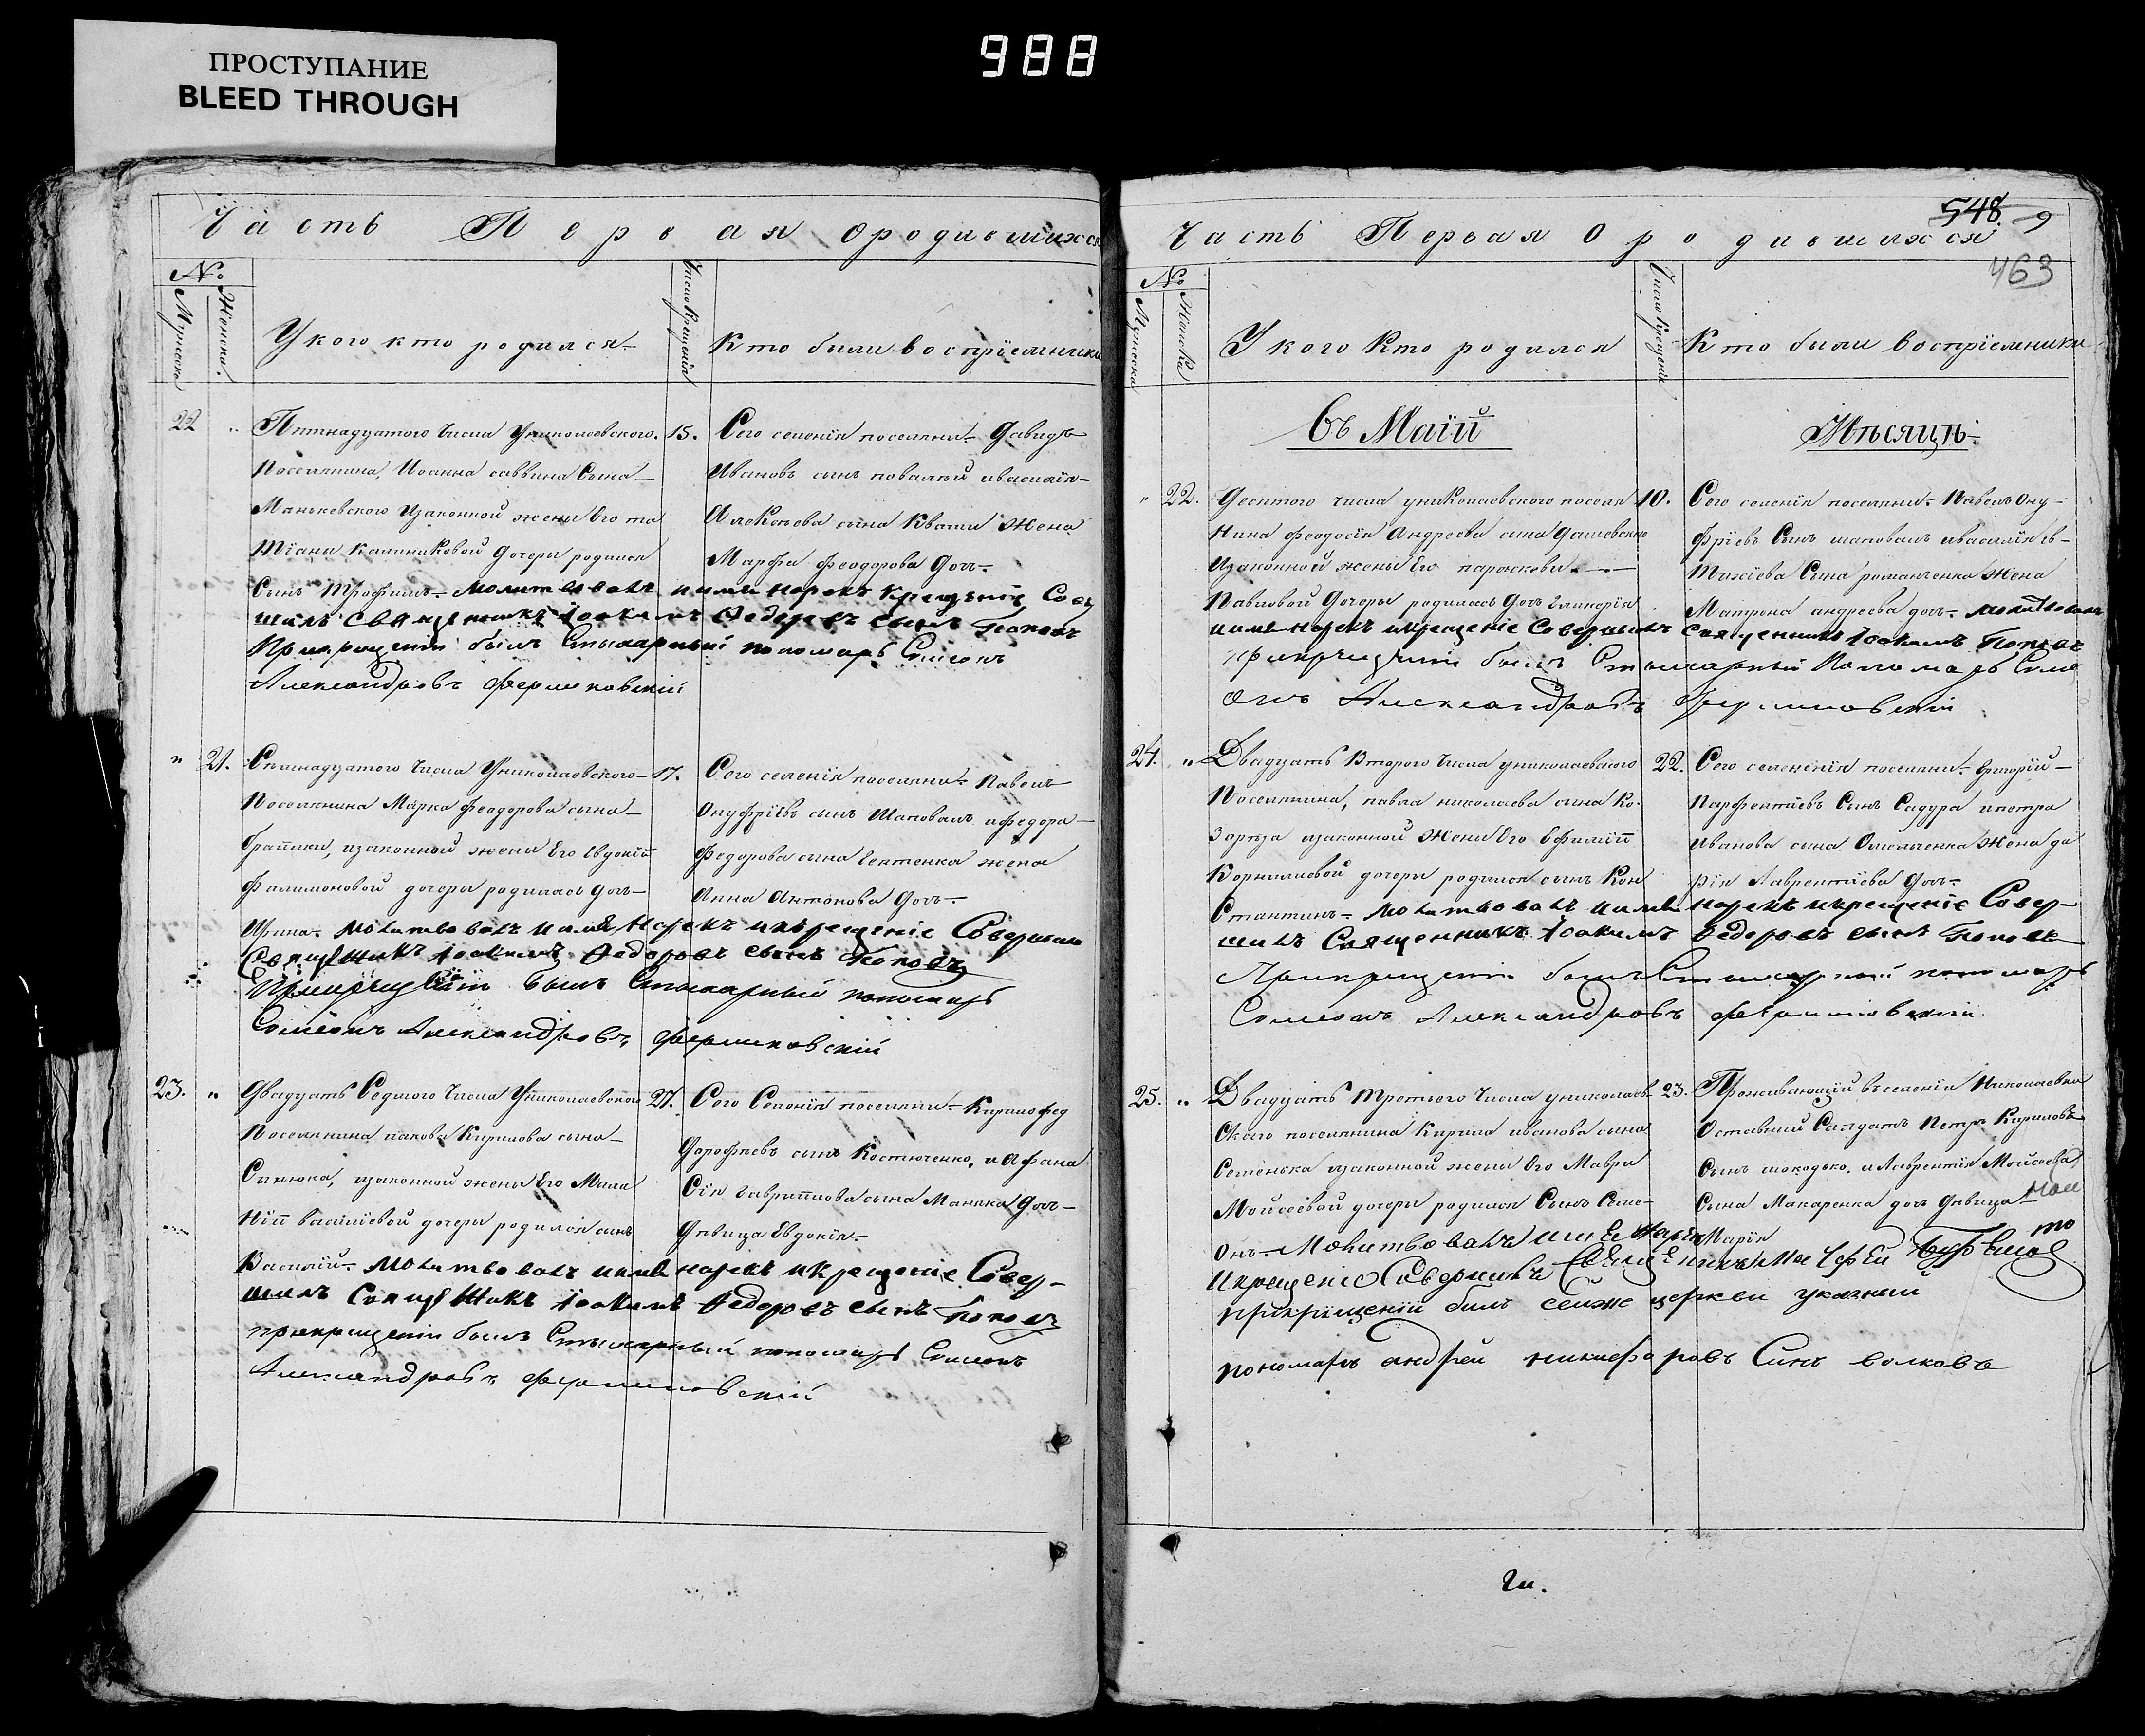 ПРОСТУПАНИЕ
BLEED THROUGH
988
Часть Первая Ородившихся
№
Мужеска
Женска.
Укого кто родился
Число Крещенія
Кто были воспріемники
22
Пятнадцатого Числа Униколаевского
Поселянина, Иоанна саввина Сына
Маньковского изаконной жены Его та
тіаны калиниковой дочеры родился
Сынъ Трофимъ молитвовалъ имя нарекъ Крещеніе Совер
шилъ священникъ Іоакимъ Федоровъ сынъ Поповъ
Прикрещеніи былъ Стихарный пономарь Симеонъ
Александровъ
15.
Сего селенія поселяни Давидъ
Ивановъ сынъ ивасилія
Алексѣева сына Кваши Жена
Марфа Феодорова Дочь
21.
Семнадцатого Числа Униколаевского
Поселянина Марка Феодорова сына
изаконной жены Его Евдокіи
Филимоновой дочеры родилась дочь
Ирина молитвовалъ имя нарекъ икрещеніе Совершилъ
Священникъ Іоакимъ Федоровъ сынъ Поповъ
Прикрещеніи былъ Стихарный пономарь
Симеонъ Александровъ
17.
Сего селенія поселяни Павелъ
Онуфріевъ сынъ Шаповалъ ифедора
Федорова сына жена
Анна Антонова Дочь
23.
Двадцать Седмого Числа Униколаевского
Поселянина иакова Кирилова сына
изаконной жены Его Мела
ніи Василіевой дочеры родился сынъ
Василій молитвовалъ имя нарекъ икрещеніе Совер
шилъ Священникъ Іоакимъ Федоровъ сынъ Поповъ
прикрещеніи былъ Стихарный пономарь Симеонъ
Александровъ
27.
Сего Селенія поселяни Кирило фед
Дорофѣевъ сынъ Костюченко, иАфана
Сія Гавриилова сына Маныка Дочь
Дѣвица Евдокія
548
9
Часть Первая О родившихся
463
№
Мужеска
Женска
Укого Кто родился
Число Крещенія
Кто были воспріемники
Въ Маій
Мѣсяцъ
22.
Десятого числа униколаевского поселя
нина феодосія Андреева сына
Изаконной жены Его параскеви
Павловой Дочеры родилась Дочь Гликерія
имя нарекъ икрещеніе Совершилъ священникъ Іоакимъ Поповъ
прикрещеніи былъ Стихарный Пономарь Симе
онъ Александровъ
10.
Сего селенія поселяни Павелъ Ону
фріевъ Сынъ шаповалъ ивасилія ев
тихіева Сына романченка Жена
Матрона андреева дочь молитвовалъ
24.
Двадцать Второго Числа униколаевского
Поселянина, павла николаева сына Ко
зорѣза изаконной Жены Его Ефиміи
Корниліевой дочеры родился сынъ Кон
стантинъ молитвовалъ имя нарекъ икрещеніе Совер
шилъ Священникъ Іоакимъ Федоровъ сынъ Поповъ
Прикрещеніи былъ Стихарный пономарь
Симеонъ Александровъ
22.
Сего селенія поселяни Григорій
Парфентіевъ Сынъ Садура ипетра
иванова сына Омельченка Жена да
рія Лаврентіева Дочь
25.
Двадцать третьего Числа униколаев
ского поселянина Кирила иванова сына
Семенька изаконной жены Его Мавры
Мойсеевой дочеры родился Сынъ Симе
онъ Молитвовалъ имя нарекъ
икрещеніе Совершилъ Священникъ Матфей
прикрещеніи былъ сеяже церкви указный
пономарь андрей никифоровъ Синъ волковъ
23.
Проживающій въселеніи Николаевка
Отставный Салдатъ Петръ Кириловъ
Сынъ иЛаврентія Мойсеева
Сына Макаренка дочь Дѣвица
Марія